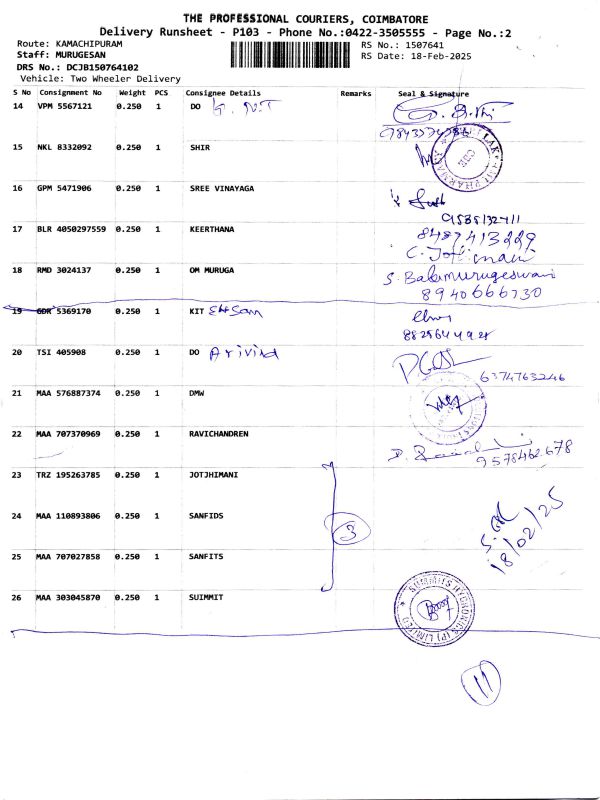 THE PROFESSIONAL COURIERS, COIMBATORE
Delivery Runsheet - P103 - Phone No.:0422-3505555 - Page No.:2
Route: KAMACHIPURAM RS No.: 1507641
Staff: MURUGESAN RS Date: 18-Feb-2025
DRS No.: DCJB150764102
Vehicle: Two Wheeler Delivery
S No Consignment No Weight PCS Consignee Details Remarks Seal & Signature
14 VPM 5567121 0.250 1 DO
15 NKL 8332092 0.250 1 SHIR
16 GPM 5471906 0.250 1 SREE VINAYAGA
9585132711
17 BLR 4050297559 0.250 1 KEERTHANA 8487413229
18 RMD 3024137 0.250 1 OM MURUGA S. Balamurugeswari
8940666730
19 GDR 5369170 0.250 1 KIT
20 TSI 405908 0.250 1 DO Arivind
6374763246
21 MAA 576887374 0.250 1 DMW
22 MAA 707370969 0.250 1 RAVICHANDREN
9578462678
23 TRZ 195263785 0.250 1 JOTJHIMANI
24 MAA 110893806 0.250 1 SANFIDS 3
18/02/25
25 MAA 707027858 0.250 1 SANFITS
26 MAA 303045870 0.250 1 SUIMMIT
11